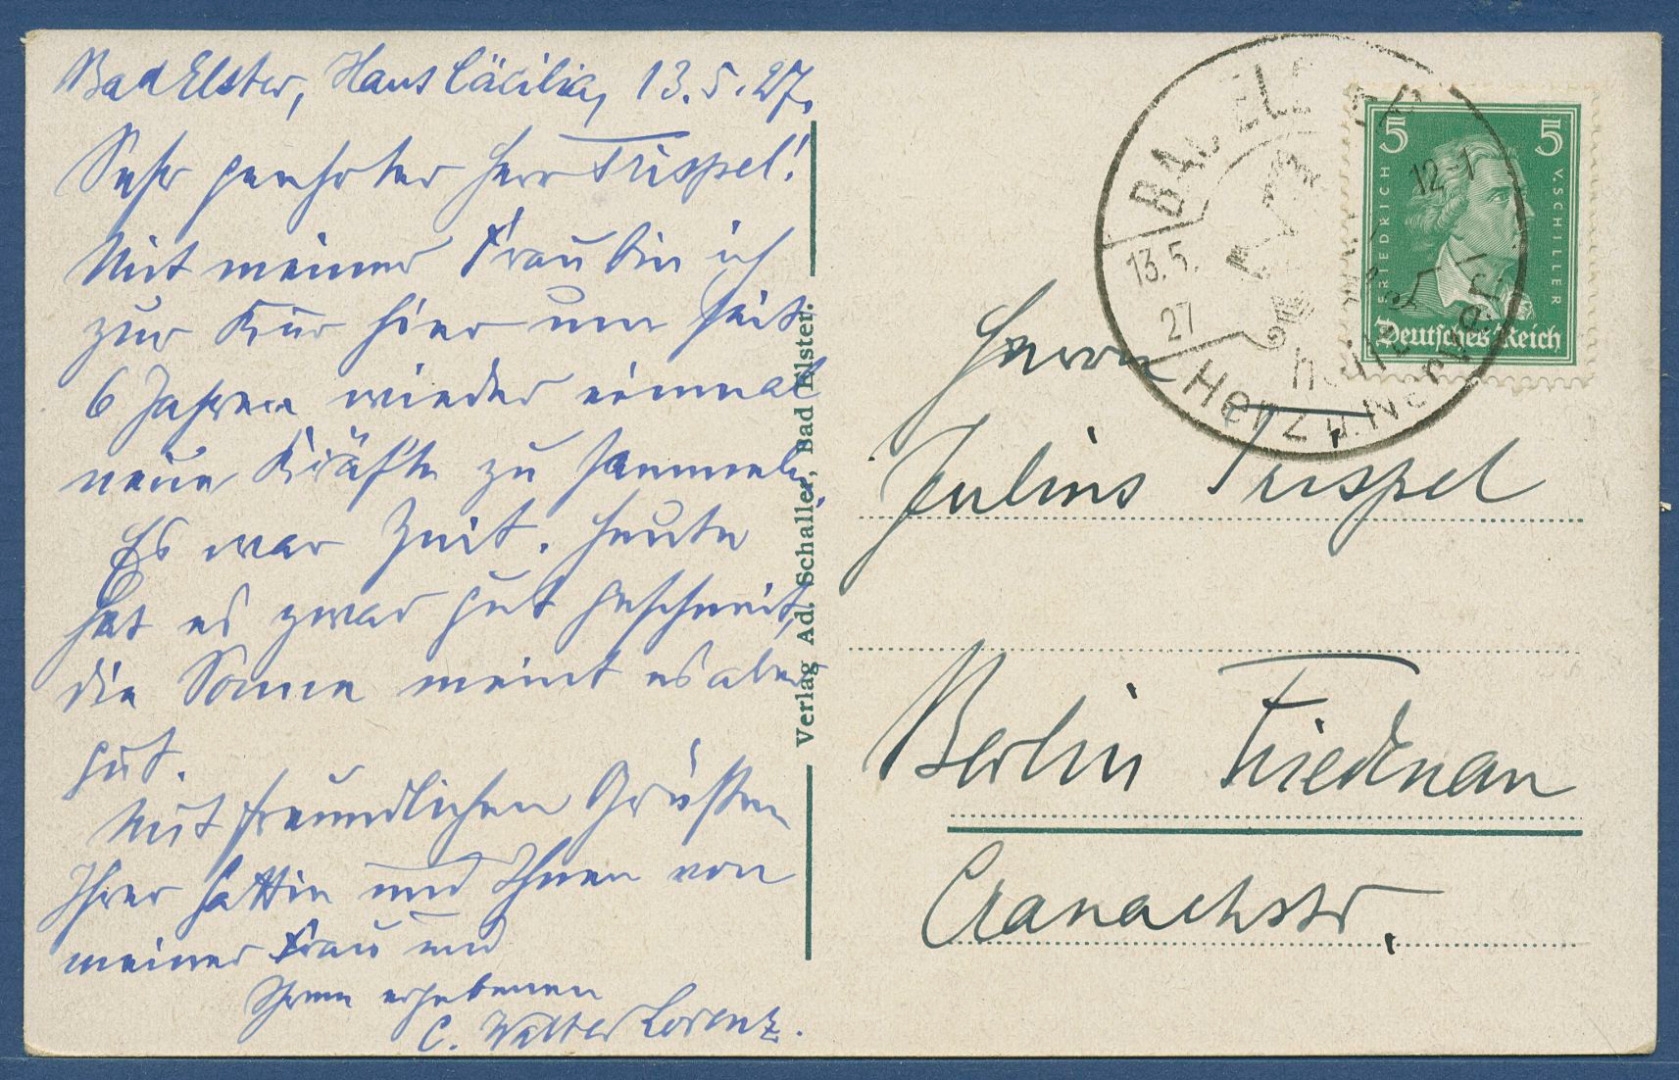 Bad Elster, Haus Cäcilia, 13.5.27.
Sehr geehrter Herr Trispel!
Mit meiner Frau bin ich
zur Kur hier um seit
6 Jahren wieder einmal
neue Kräfte zu sammeln.
Es war Zeit. Heute
hat es zwar gut geschneit,
die Sonne meint es aber
gut.
Mit freundlichen Grüßen
Ihrer Gattin und Ihnen von
meiner Frau und
Ihrem ergebenen
C. Walter Lorenz.
Verlag Ad. Schaller, Bad Elster.
BAD ELSTER
13.5.
27
12-1
Herz u. Nerven
heilt
5 5
FRIEDRICH
V. SCHILLER
Deutsches Reich
Herrn
Julius Trispel
Berlin Friedenau
Cranachstr.